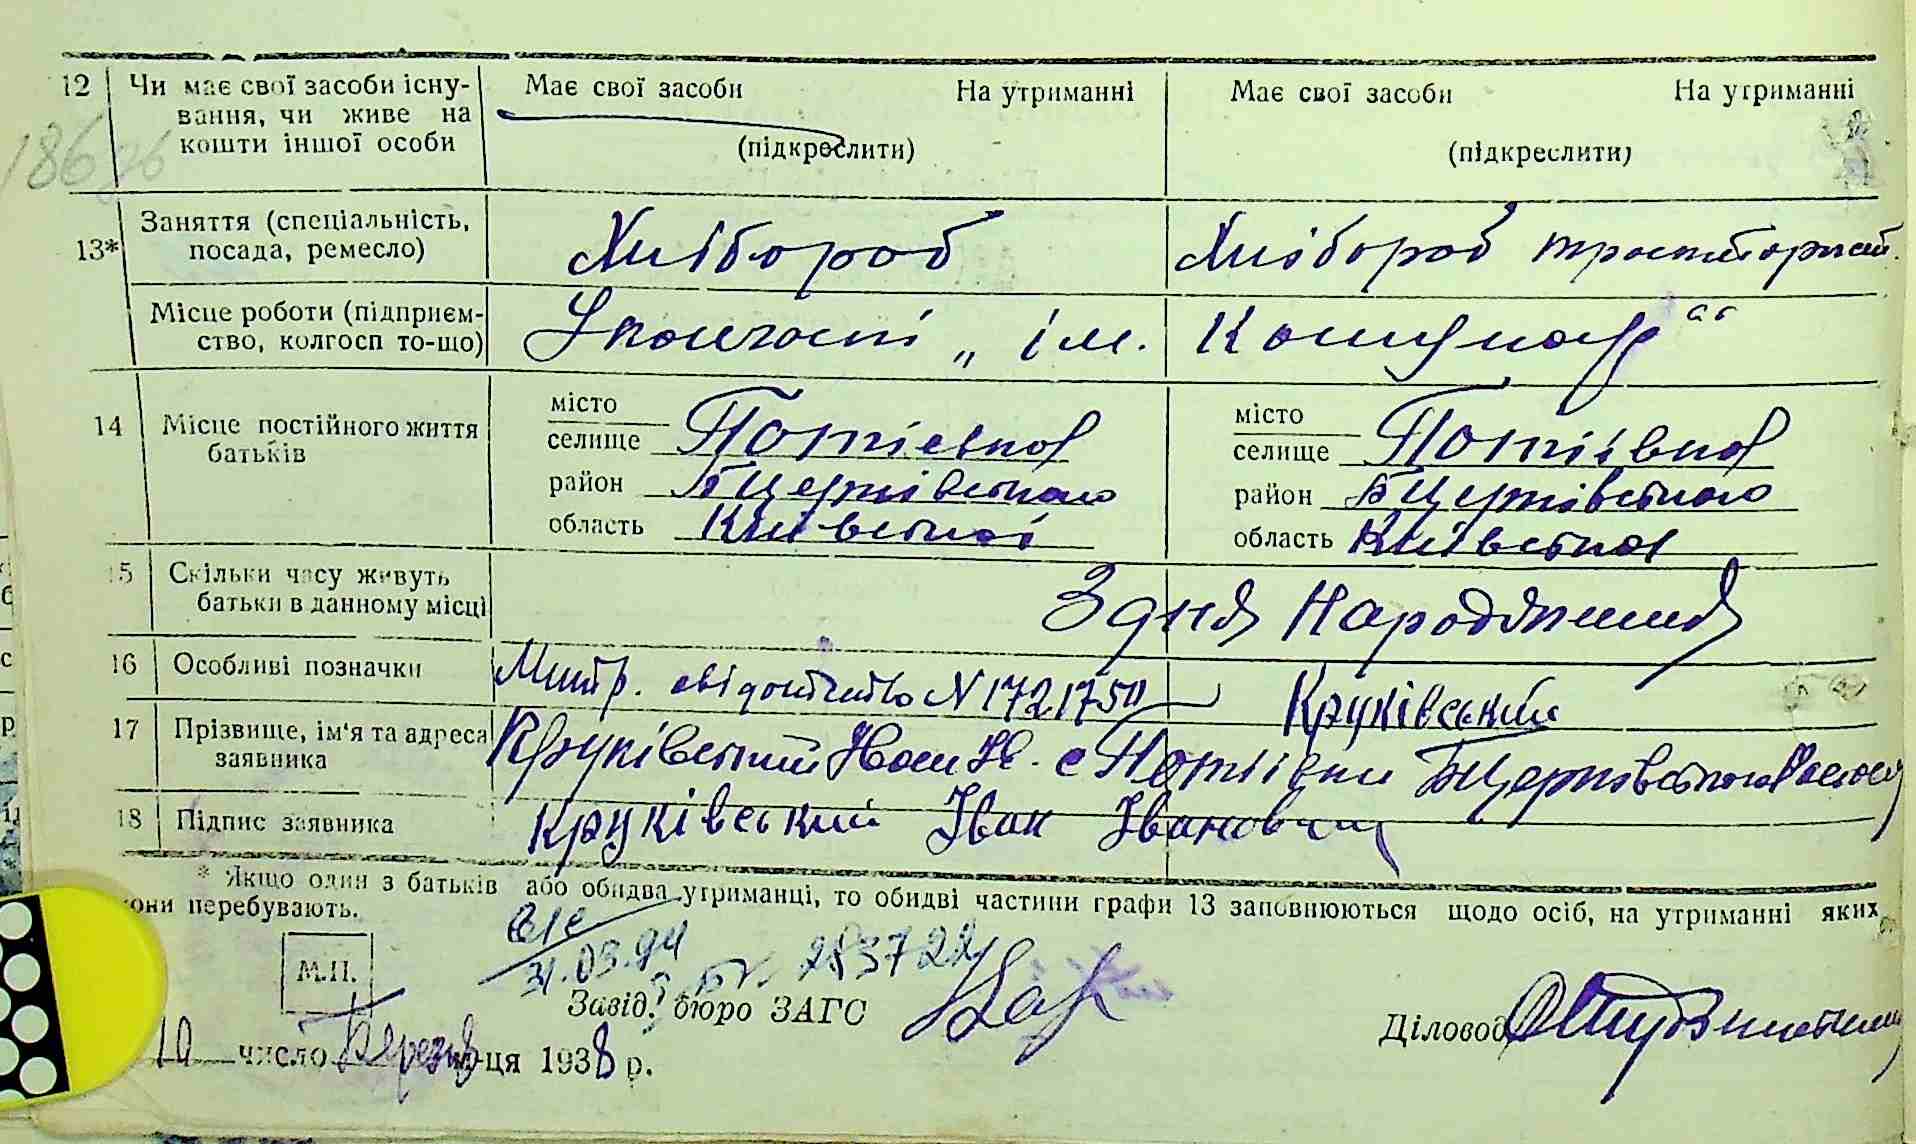 12 Чи має свої засоби існу- Має свої засоби На утриманні Має свої засоби На утриманні
вання, чи живе на
кошти іншої особи (підкреслити) (підкреслити)
186
13* Заняття (спеціальність, Хлібороб Хлібороб тракторист
посада, ремесло)
Місце роботи (підприєм- У колгоспі „ ім. Комунар “
ство, колгосп то-що)
14 Місце постійного життя місто місто
батьків селище Потіевка селище Потіївка
район БЦерківського район БЦерківського
область Київської область Київської
15 Скільки часу живуть З дня народження
батьки в данному місці
16 Особливі позначки свідоцтво N 1721750 Круківський
17 Прізвище, ім'я та адреса Круківський Іван Ів. с Потіївки БЦерківського
заявника
18 Підпис заявника Круківський Іван Іванович
* Якщо один з батьків або обидва утриманці, то обидві частини графи 13 заповнюються щодо осіб, на утриманні яких
вони перебувають.
31.03.94 283722
М.П.
Завід. бюро ЗАГС
Діловод
10 число Березня м-ця 1938 р.